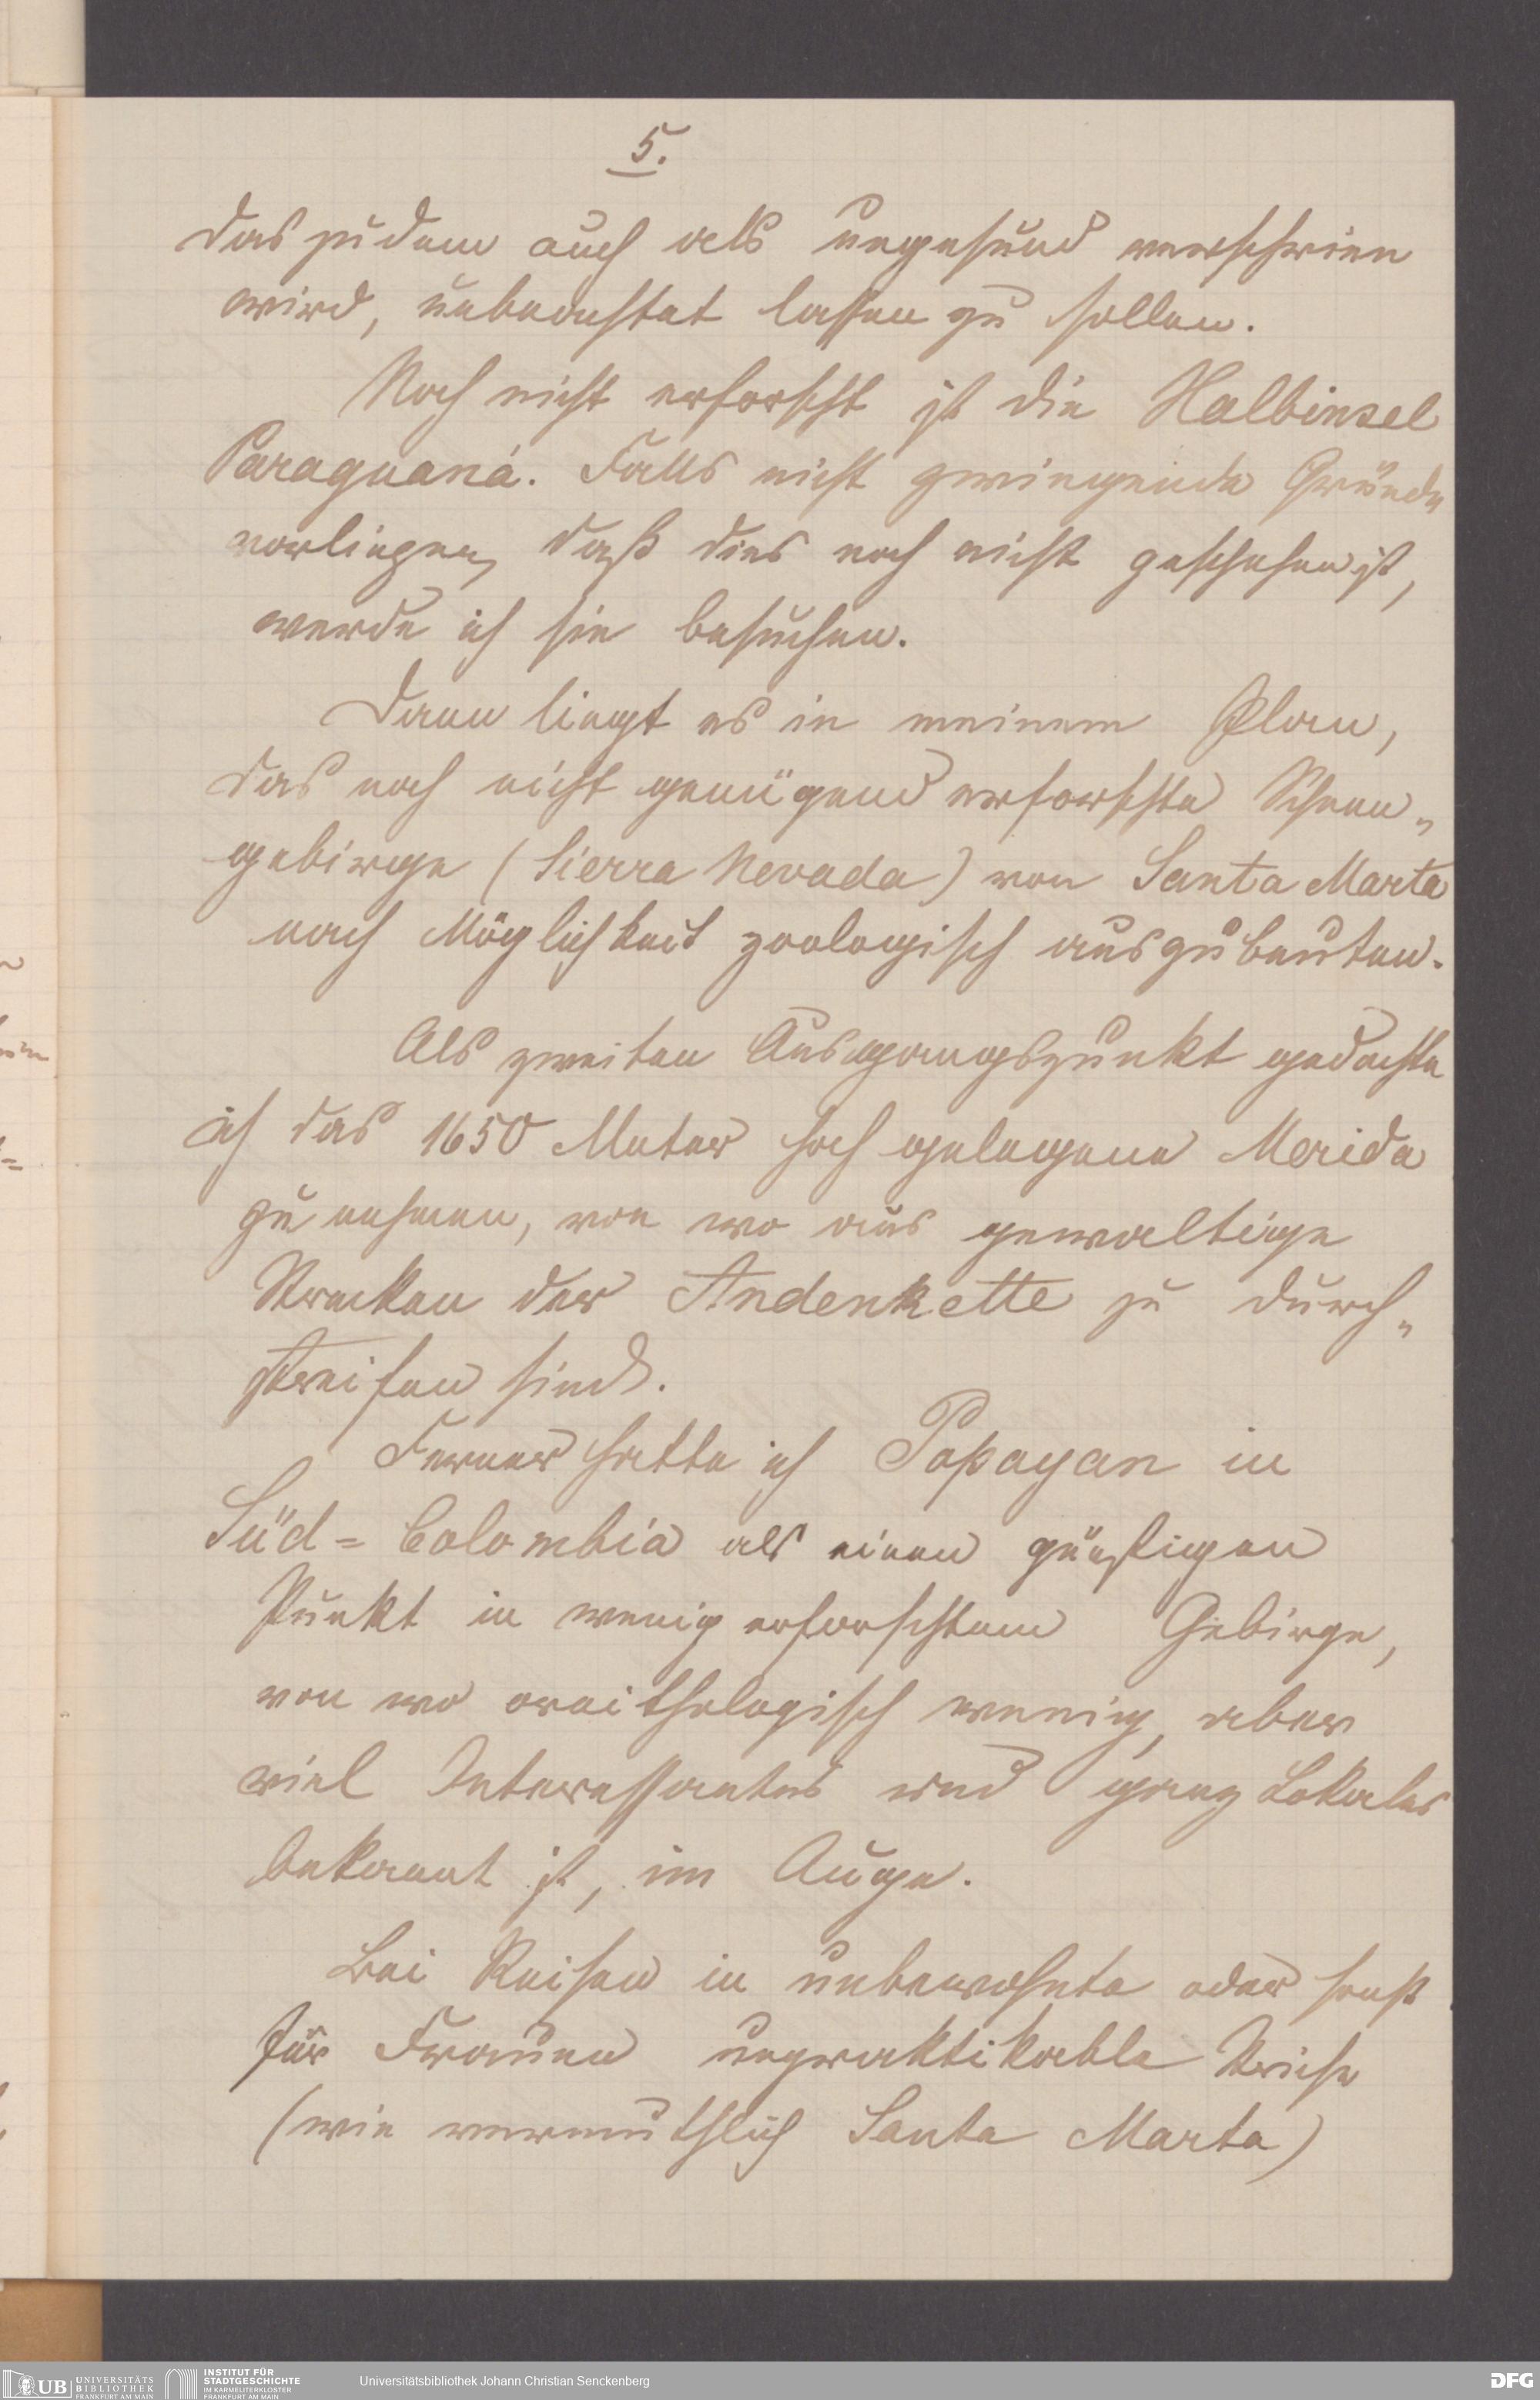 5.
das zudem auch als ungesund verschrien
wird, unbeachtet lassen zu sollen.
Noch nicht erforscht ist die Halbinsel
Paraguaná. Falls nicht zwingende Gründe
vorliegen, daß dies noch nicht geschehen ist,
werde ich sie besuchen.
Dann liegt es in meinem Plan,
das noch nicht genügend erforschte Schnee„
gebirge (Sierra Nevada) von Santa Marta
nach Möglichkeit zoologisch auszubeuten.
Als zweiten Ausgangspunkt gedachte
ich das 1650 Meter hoch gelegene Merida
zu nehmen, von wo aus gewaltige
Strecken der Andenkette zu durch„
streifen sind.
Ferner hatte ich Popayan in
Süd=Colombia als einen günstigen
Punkt in wenig erforschtem Gebirge,
von wo ornithologisch wenig, aber
viel Interessantes und ganz Lokales
bekannt ist, im Auge.
Bei Reisen in unbewohnte oder sonst
für Frauen unpraktikable Striche
(wie vermuthlich Santa Marta)
UB UNIVERSITÄTS
BIBLIOTHEK
FRANKFURT AM MAIN
INSTITUT FÜR
STADTGESCHICHTE
IM KARMELITERKLOSTER
FRANKFURT AM MAIN
Universitätsbibliothek Johann Christian Senckenberg
DFG